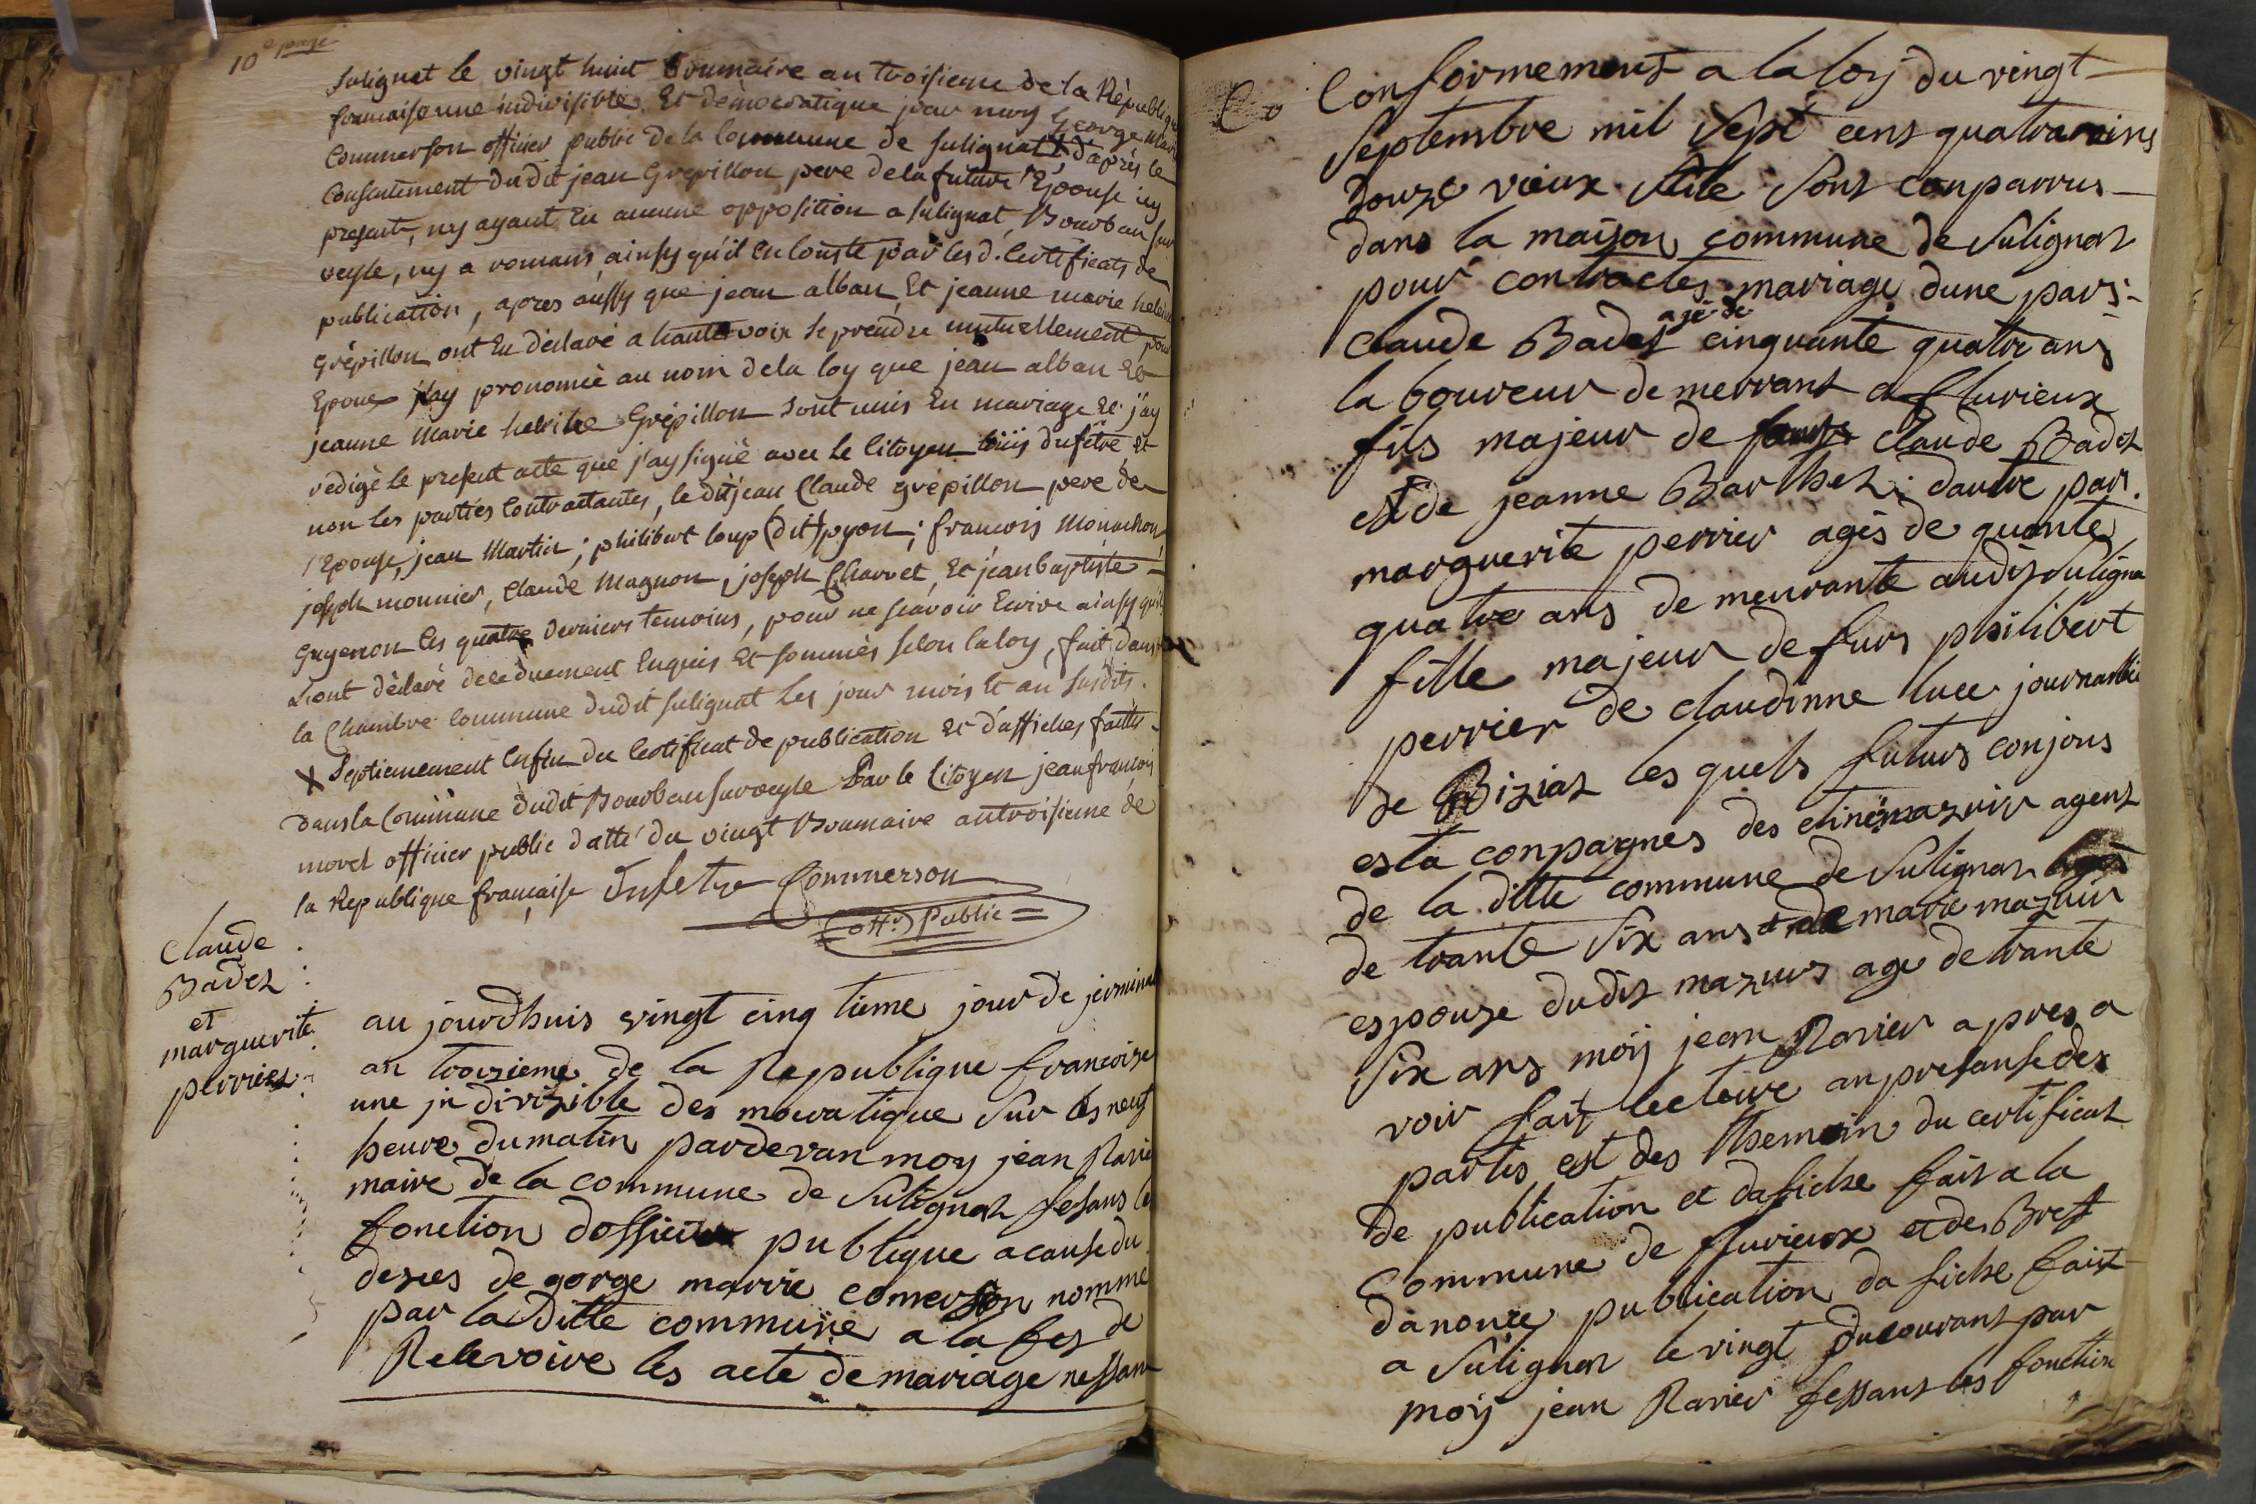 10e page
sulignat le vingt huit brumaire an troisieme de la Republique
francaise une indivisible Et democratique par moy George Marie
Commerson officier public de la Commune de sulignat d'après le
Consentement du dit jean Grepillon pere de la future Epouse icy
present, ny ayant Eu aucune opposition a sulignat, Bourbon sur
veyle, ny a romans ainsy qu'il en Conste par les d. Certificats de
publication, apres aussy que jean alban Et jeanne marie helene
Grépillon ont Eu déclaré a haute voix se prendre mutuellement pour
Epoux j'ay prononcé au nom de la loy que jean alban Et
jeanne Marie helene Grépillon sont unis En mariage Et j'ay
redigé le present acte que j'ay signé avec le Citoyen louis dufêtre Et
non les parties Contractantes, le dit jean Claude grépillon pere de
l'Epouse, jean Martin; philibert loup (dit) pyon; francois Monachon,
joseph monnier, Claude Magnon, joseph Charvet, Et jean baptiste
Guyenon les quatre derniers temoins, pour ne sçavoir Ecrire ainsy qu'ils
L'ont déclaré de ce duement Enquis Et sommés selon la loy, fait dans
la Chambre Commune du dit sulignat les jour mois Et an susdits.
X Septiemement Enfin du Certificat de publication Et d'affiches faittes
dans la Commune du dit Bourbon surveyle Par le Citoyen jean francois
morel officier public datté du vingt Brumaire an troisieme de
la Republique française Dufetre Commerson
(off.r) Public =
Claude
Badez
et
marguerite
perrier
au jourdhuis vingt cinq tieme jour de jerminal
an troizieme de la Republique francoize
une jndivizible des mocratique sur les neuf
heure du matin pardevan moy jean Ravier
maire de la commune de Sulignat fesans les
fonction dossicier publique a cause du
desses de gorge marrie comerson nomme
par la ditte commune a la fes de
Relevoire les acte de mariage nessans
Co Conformement a la loy du vingt
Septembre mil Sept cens quatravins
douze vieux stile sons conparrus
dans la maison commune de Sulignat
pour contracter mariage dune pars
age de
claude Badez cinquante quatre ans
la boureur demerrant a flurieux
fils majeur de claude Badez
et de jeanne Barthez dautre par.
marguerite perrier agés de quante
quatre ans de meurante audit Suligna
fille majeur de furs philibert
perrier de claudinne luce journallié
de Biziat les quels futurs conjons
esta conpagnes des etine mazuir agent
de la ditte commune de Sulignat
de trante Six ans et de marie mazuir
espouze dudit mazuirs age de trante
Six ans moy jean Ravier apres a
voir fait lecteure an presanse des
partis est des themoin du certificat
de publication et dafiche fait a la
Commune de flurieux et de Brest
danonce publication da fiche fait
a Sulignat le vingt du courant par
moy jean Ravier fessant les fonction